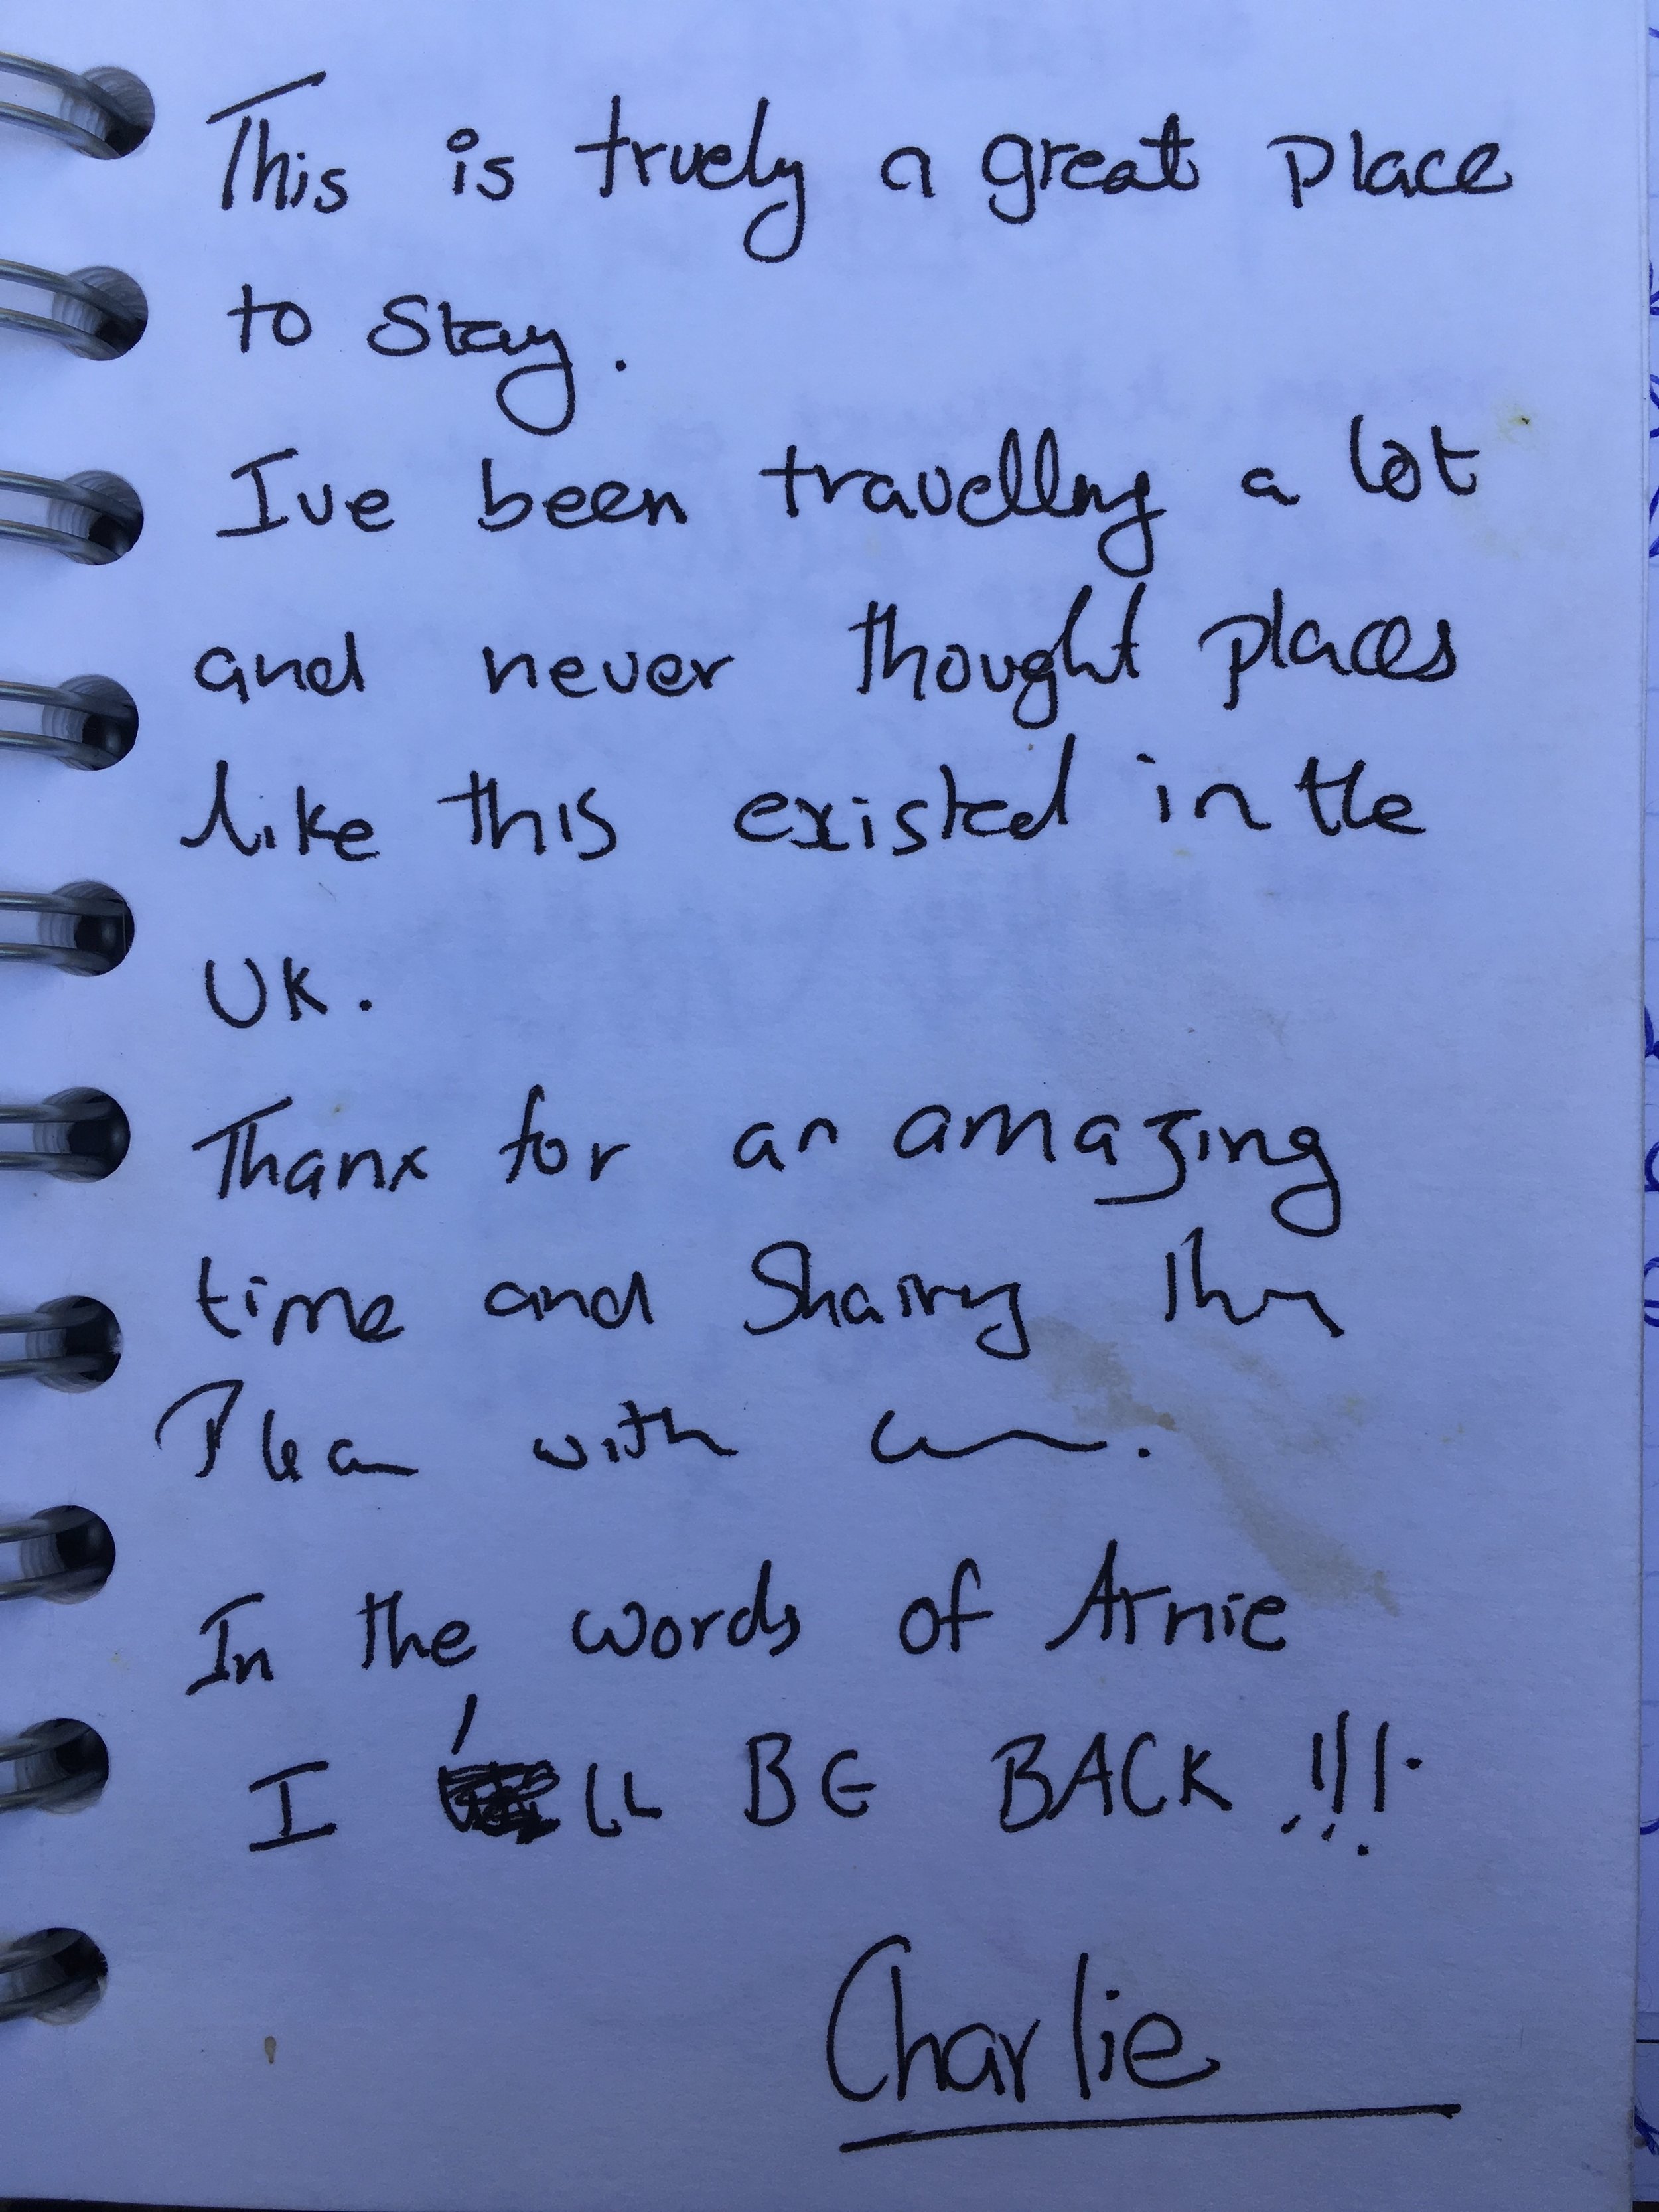 This is truely a great place
to stay.
Ive been travelling a lot
and never thought places
like this existed in the
UK.
Thanx for an amazing
time and Sharing this
with
In the words of Arnie
I 'LL BE BACK !!!
Charlie